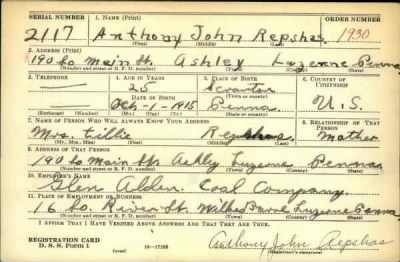 SERIAL NUMBER 1. NAME (Print) ORDER NUMBER
2117 Anthony John Repshas 1930
(First) (Middle) (Last)
2. ADDRESS (Print)
190 So Main St. Ashley Luzerne Penna
(Number and street or R. F. D. number) (Town) (County) (State)
3. TELEPHONE 4. AGE IN YEARS 5. PLACE OF BIRTH 6. COUNTRY OF CITIZENSHIP
25 Scranton
DATE OF BIRTH (Town or county)
-1-1915 Penna. U.S.
(Exchange) (Number) (Mo.) (Day) (Yr.) (State or country)
7. NAME OF PERSON WHO WILL ALWAYS KNOW YOUR ADDRESS 8. RELATIONSHIP OF THAT PERSON
Mrs. Tillie Repshas Mother
(Mr., Mrs., Miss) (First) (Middle) (Last)
9. ADDRESS OF THAT PERSON
190 So Main St. Ashley Luzerne Penna.
(Number and street or R. F. D. number) (Town) (County) (State)
10. EMPLOYER'S NAME
Glen Alden Coal Company
11. PLACE OF EMPLOYMENT OR BUSINESS
16 So. River St. Wilkes Barre Luzerne Penna
(Number and street or R. F. D. number) (Town) (County) (State)
I AFFIRM THAT I HAVE VERIFIED ABOVE ANSWERS AND THAT THEY ARE TRUE.
REGISTRATION CARD
D. S. S. Form 1 (over) 16—17105 Anthony John Repshas
(Registrant's signature)